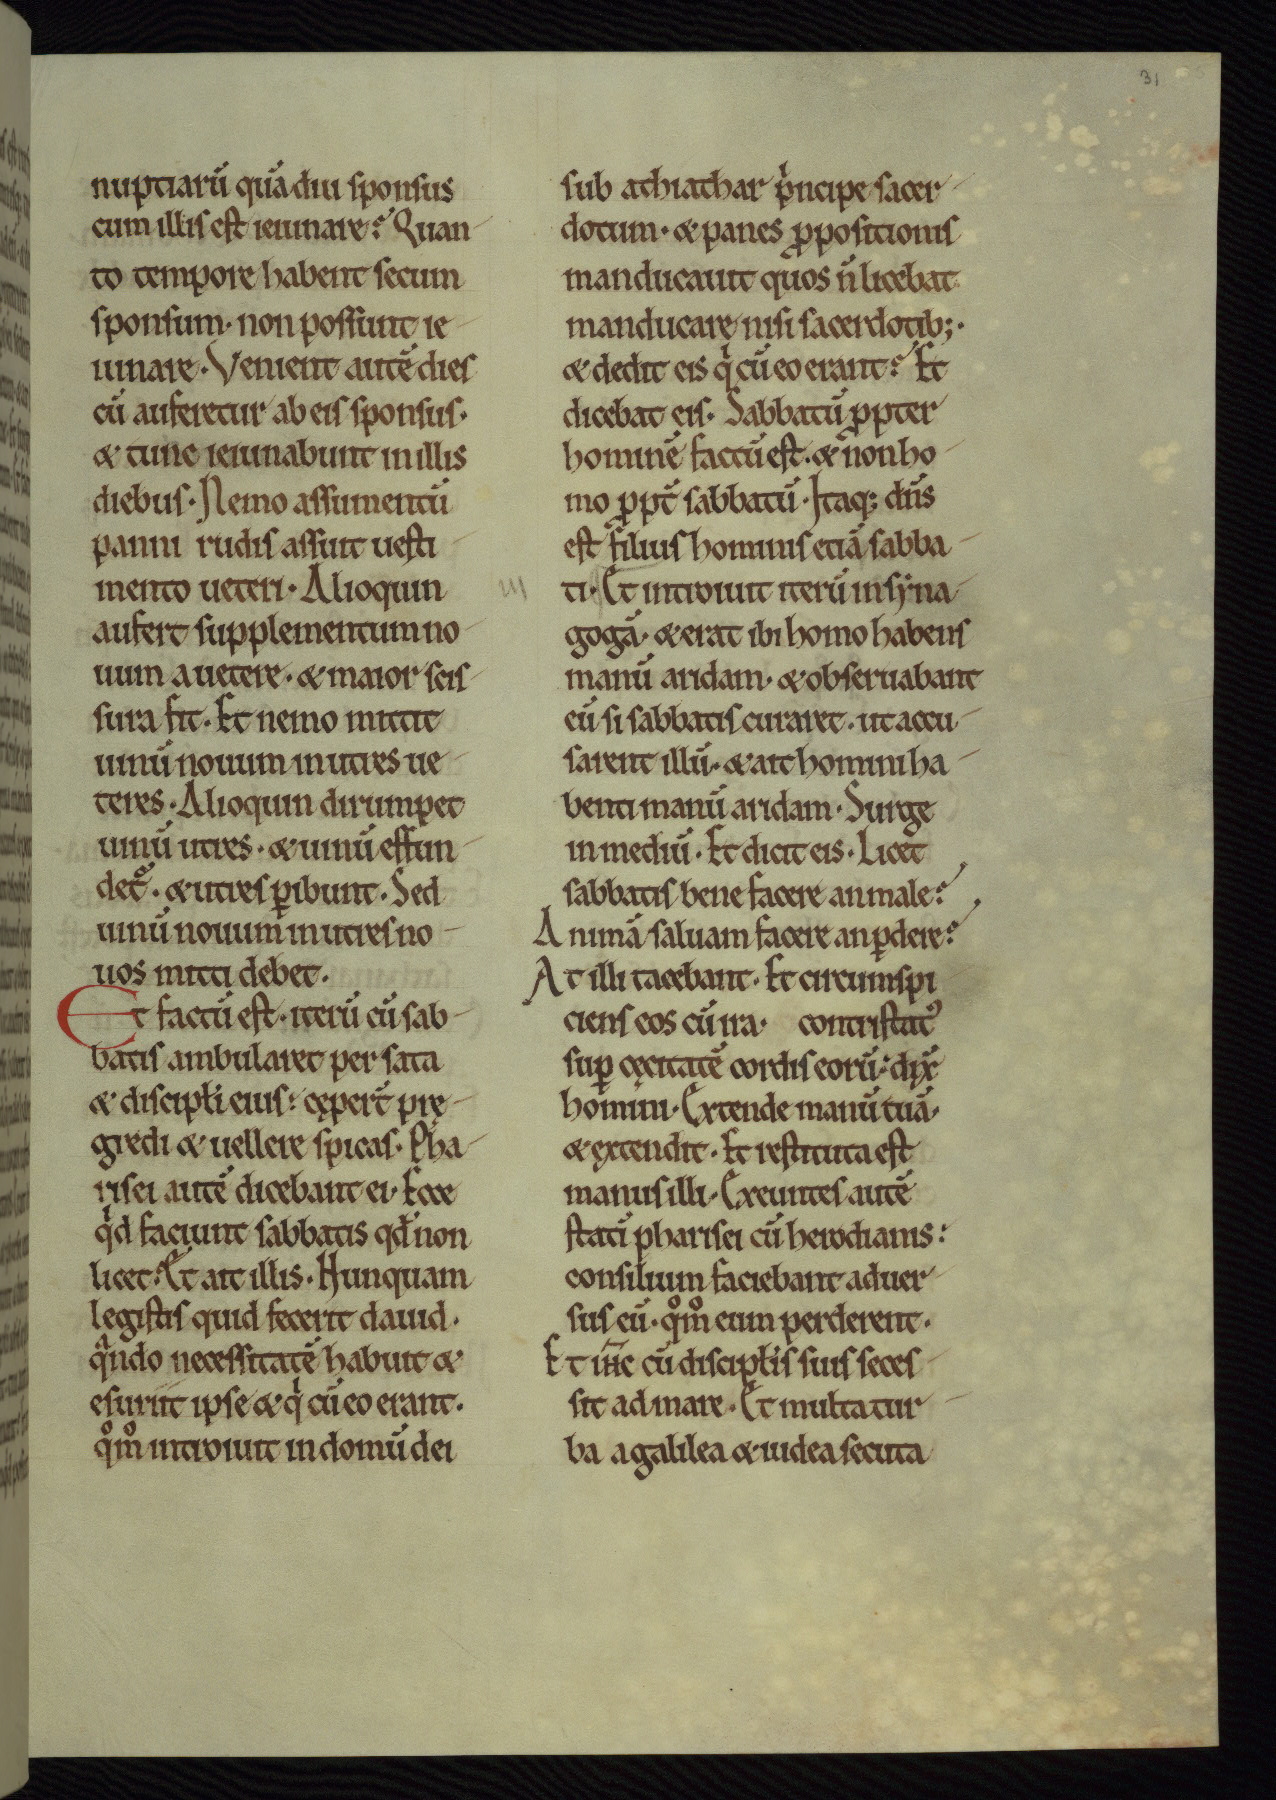 31
nuptiarū quādiu sponsus
cum illis est ieiunare? Quan-
to tempore habent secum
sponsum· non possunt ie-
iunare· Venient autē dies
cū auferetur ab eis sponsus·
& tunc ieiunabunt in illis
diebus· Nemo assumentū
panni rudis assuit uesti-
mento ueteri· Alioquin
aufert supplementum no-
uum a uetere· & maior scis-
sura fit· Et nemo mittit
uinū nouum in utres ue-
teres· Alioquin dirumpet
uinū utres· & uinū effun-
det᷑· & utres ꝑibunt· Sed
uinū nouum in utres no-
uos mitti debet·
Et factū est· iterū cū sab-
batis ambularet per sata
& discipłi eius: cęper̄t prę-
gredi & uellere spicas· Pha-
risei autē dicebant ei· Ecce
qͥd faciunt sabbatis qđ non
licet· Et ait illis· Nunquam
legistis quid fecerit dauid·
qͣndo necessitatē habuit &
esuriit ipse & qͥ cū eo erant·
qͦmͦ introiuit in domū dei
sub athiathar pͥncipe sacer-
dotum· & panes ꝓpositionis
manducauit quos n̄ licebat
manducare nisi sacerdotib;·
& dedit eis qͥ cū eo erant? Et
dicebat eis· Sabbatū ꝓpter
hominē factū est· & non ho-
mo ꝓpt̄ sabbatū· Itaq; dn̄s
est filius hominis etiā sabba-
III ti· Et introiuit iterū in syna-
gogā· & erat ibi homo habens
manū aridam· & obseruabant
eū si sabbatis curaret· ut accu-
sarent illū· & ait homini ha-
benti manū aridam· Surge
in mediū· Et dicit eis· Licet
sabbatis bene facere an male?
Animā saluam facere an ꝑdere?
At illi tacebant· Et circumspi
ciens eos cū ira· contristatꝰ
suꝑ cęcitatē cordis eorū: dix̄
homini· Extende manū tuā·
& extendit· Et restituta est
manus illi· Exeuntes autē
statī pharisei cū herodianis:
consilium faciebant aduer-
sus eū· qͦmͦ eum perderent·
Et ih̄c cū discipłis suis seces-
sit ad mare· Et multa tur-
ba a galilea & iudea secuta